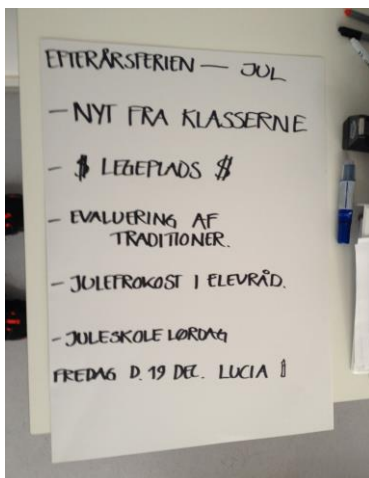 EFTERÅRSFERIEN — JUL
- NYT FRA KLASSERNE
- $ LEGEPLADS $
- EVALUERING AF
TRADITIONER.
- JULEFROKOST I ELEVRÅD.
- JULESKOLE LØRDAG
FREDAG D. 19 DEC. LUCIA